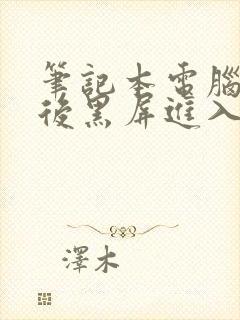 筆記本電腦
後黑屏進入
澤木